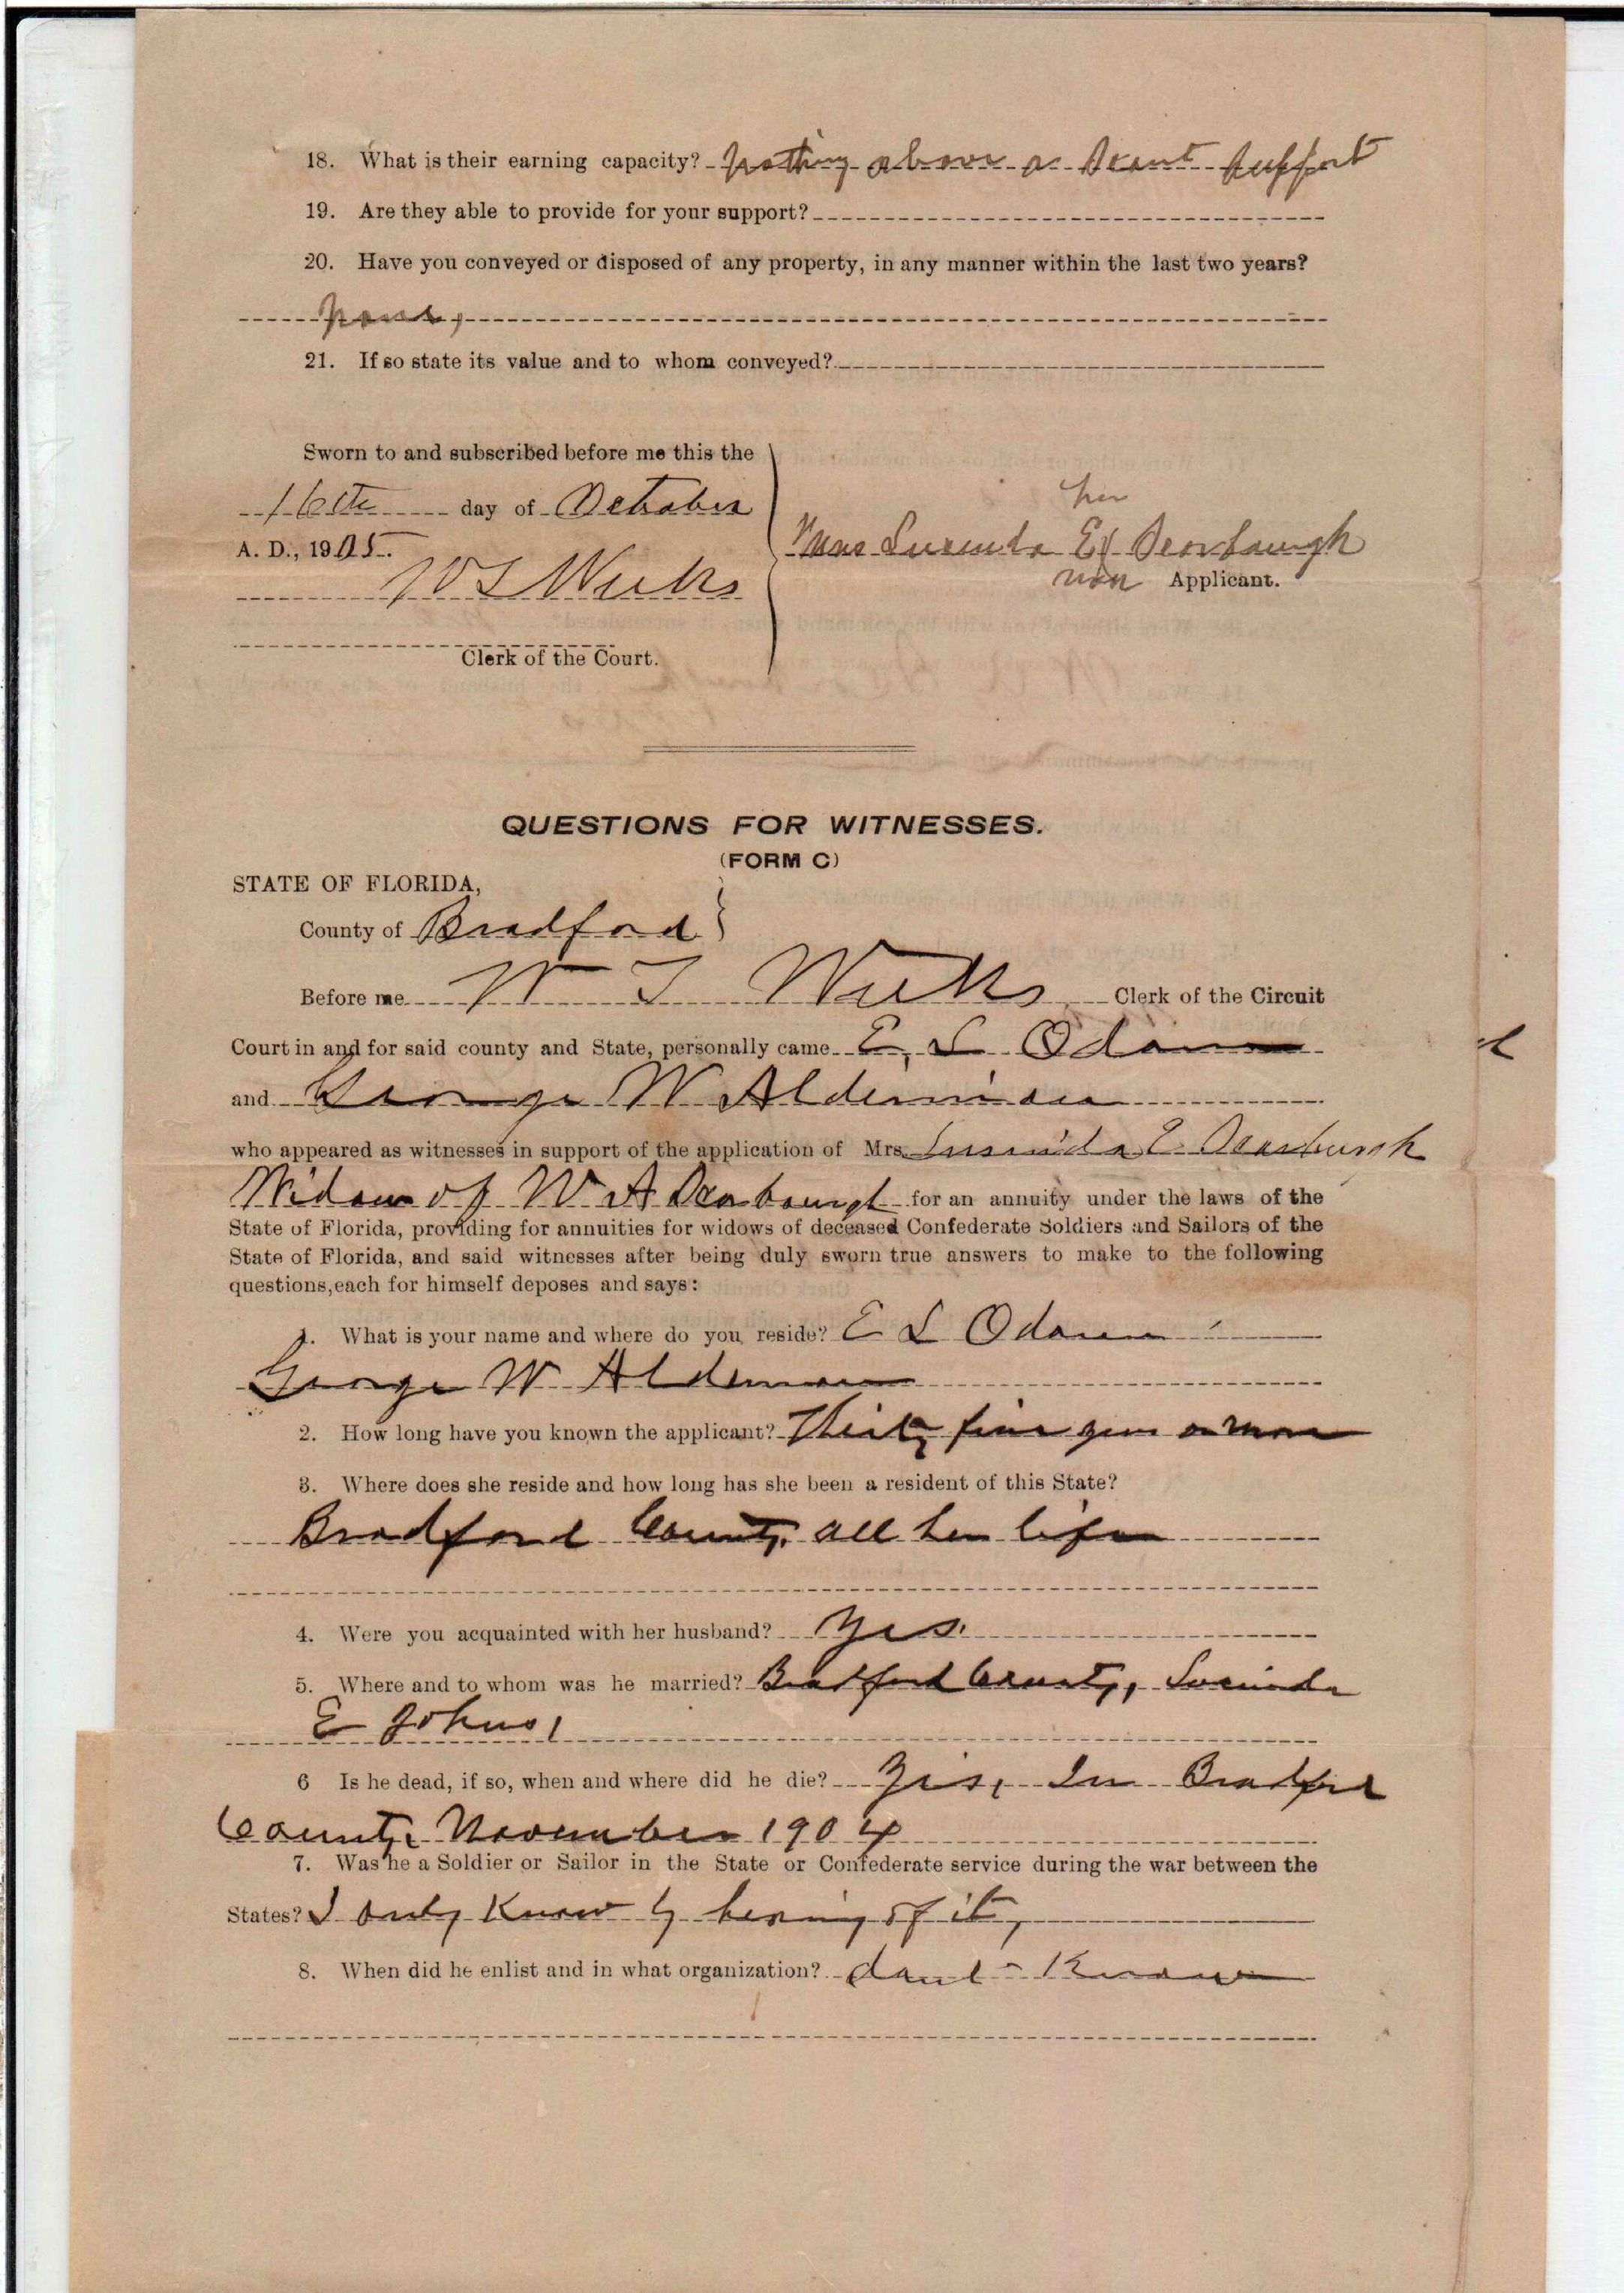 18. What is their earning capacity? Nothing above a Scant Support
19. Are they able to provide for your support?
20. Have you conveyed or disposed of any property, in any manner within the last two years?
None,
21. If so state its value and to whom conveyed?
Sworn to and subscribed before me this the
16th day of October
A. D., 1905.
her
Mrs Lucinda E X Dearbaugh
Applicant.
Weeks
Clerk of the Court.
QUESTIONS FOR WITNESSES.
(FORM C)
STATE OF FLORIDA,
County of Bradford
Before me W T Weeks Clerk of the Circuit
Court in and for said county and State, personally came E, L Odom
and George W Alderman
who appeared as witnesses in support of the application of Mrs. Lucinda E
Widow of W A Dearbaugh for an annuity under the laws of the
State of Florida, providing for annuities for widows of deceased Confederate Soldiers and Sailors of the
State of Florida, and said witnesses after being duly sworn true answers to make to the following
questions, each for himself deposes and says:
1. What is your name and where do you reside? E L Odom
George W Alderman
2. How long have you known the applicant? Thirty five years or more
3. Where does she reside and how long has she been a resident of this State?
Bradford County, all her life
4. Were you acquainted with her husband? Yes.
5. Where and to whom was he married? Bradford County, Lucinda
E Johns,
6 Is he dead, if so, when and where did he die? Yes, In Bradford
County, November 1904
7. Was he a Soldier or Sailor in the State or Confederate service during the war between the
States? I only Know by hearing of it,
8. When did he enlist and in what organization? dont Know